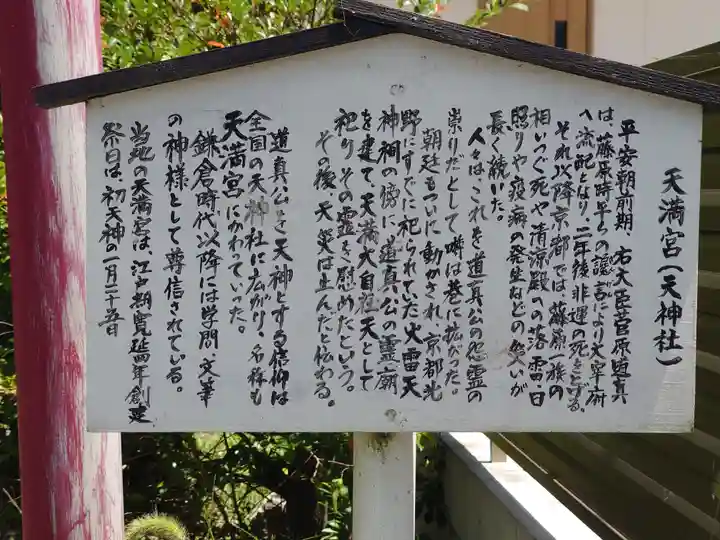 天満宮(天神社)
平安朝前期 右大臣菅原道真
は、藤原時平らの讒言により大宰府
へ流配となり、二年後非運の死をとげる。
それ以降京都では、藤原一族の
相いつぐ死や清涼殿への落雷、日
照りや疫病の発生などの災いが
長く続いた。
人々は、これを道真公の怨霊の
祟りだとして噂は巷に拡がった。
朝廷もついに動かされ、京都北
野にすでに祀られていた火雷天
神祠の傍に、道真公の霊廟
を建て、天満大自在天として
祀りその霊を慰めたという。
その後、天災は止んだと伝わる。
道真公を天神とする信仰は
全国の天神社に広がり、名称も
天満宮にかわっていった。
鎌倉時代以降には学問、文筆
の神様として尊信されている。
当地の天満宮は、江戸期寛延四年創建
祭日は、初天神の一月二十五日